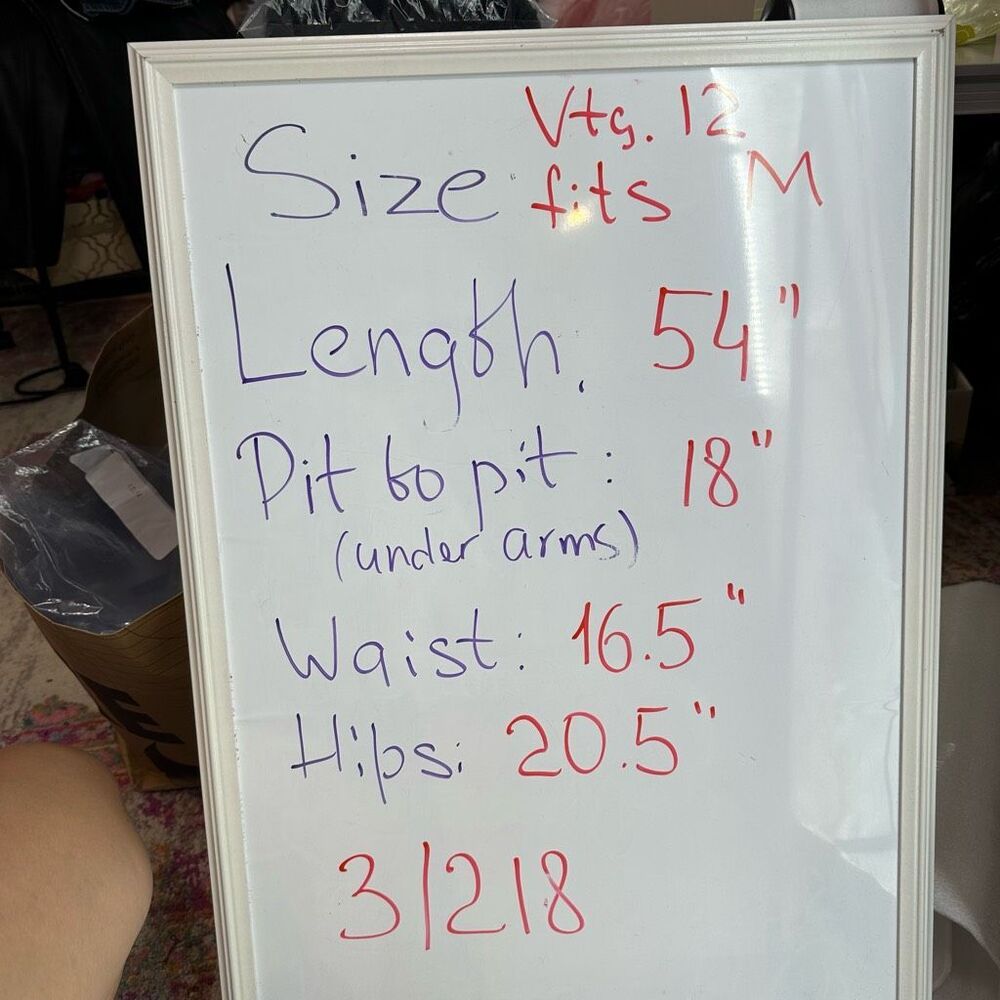 Vtg. 12
Size: fits M
Length. 54"
Pit to pit: 18"
(under arms)
Waist: 16.5"
Hips: 20.5"
3/218